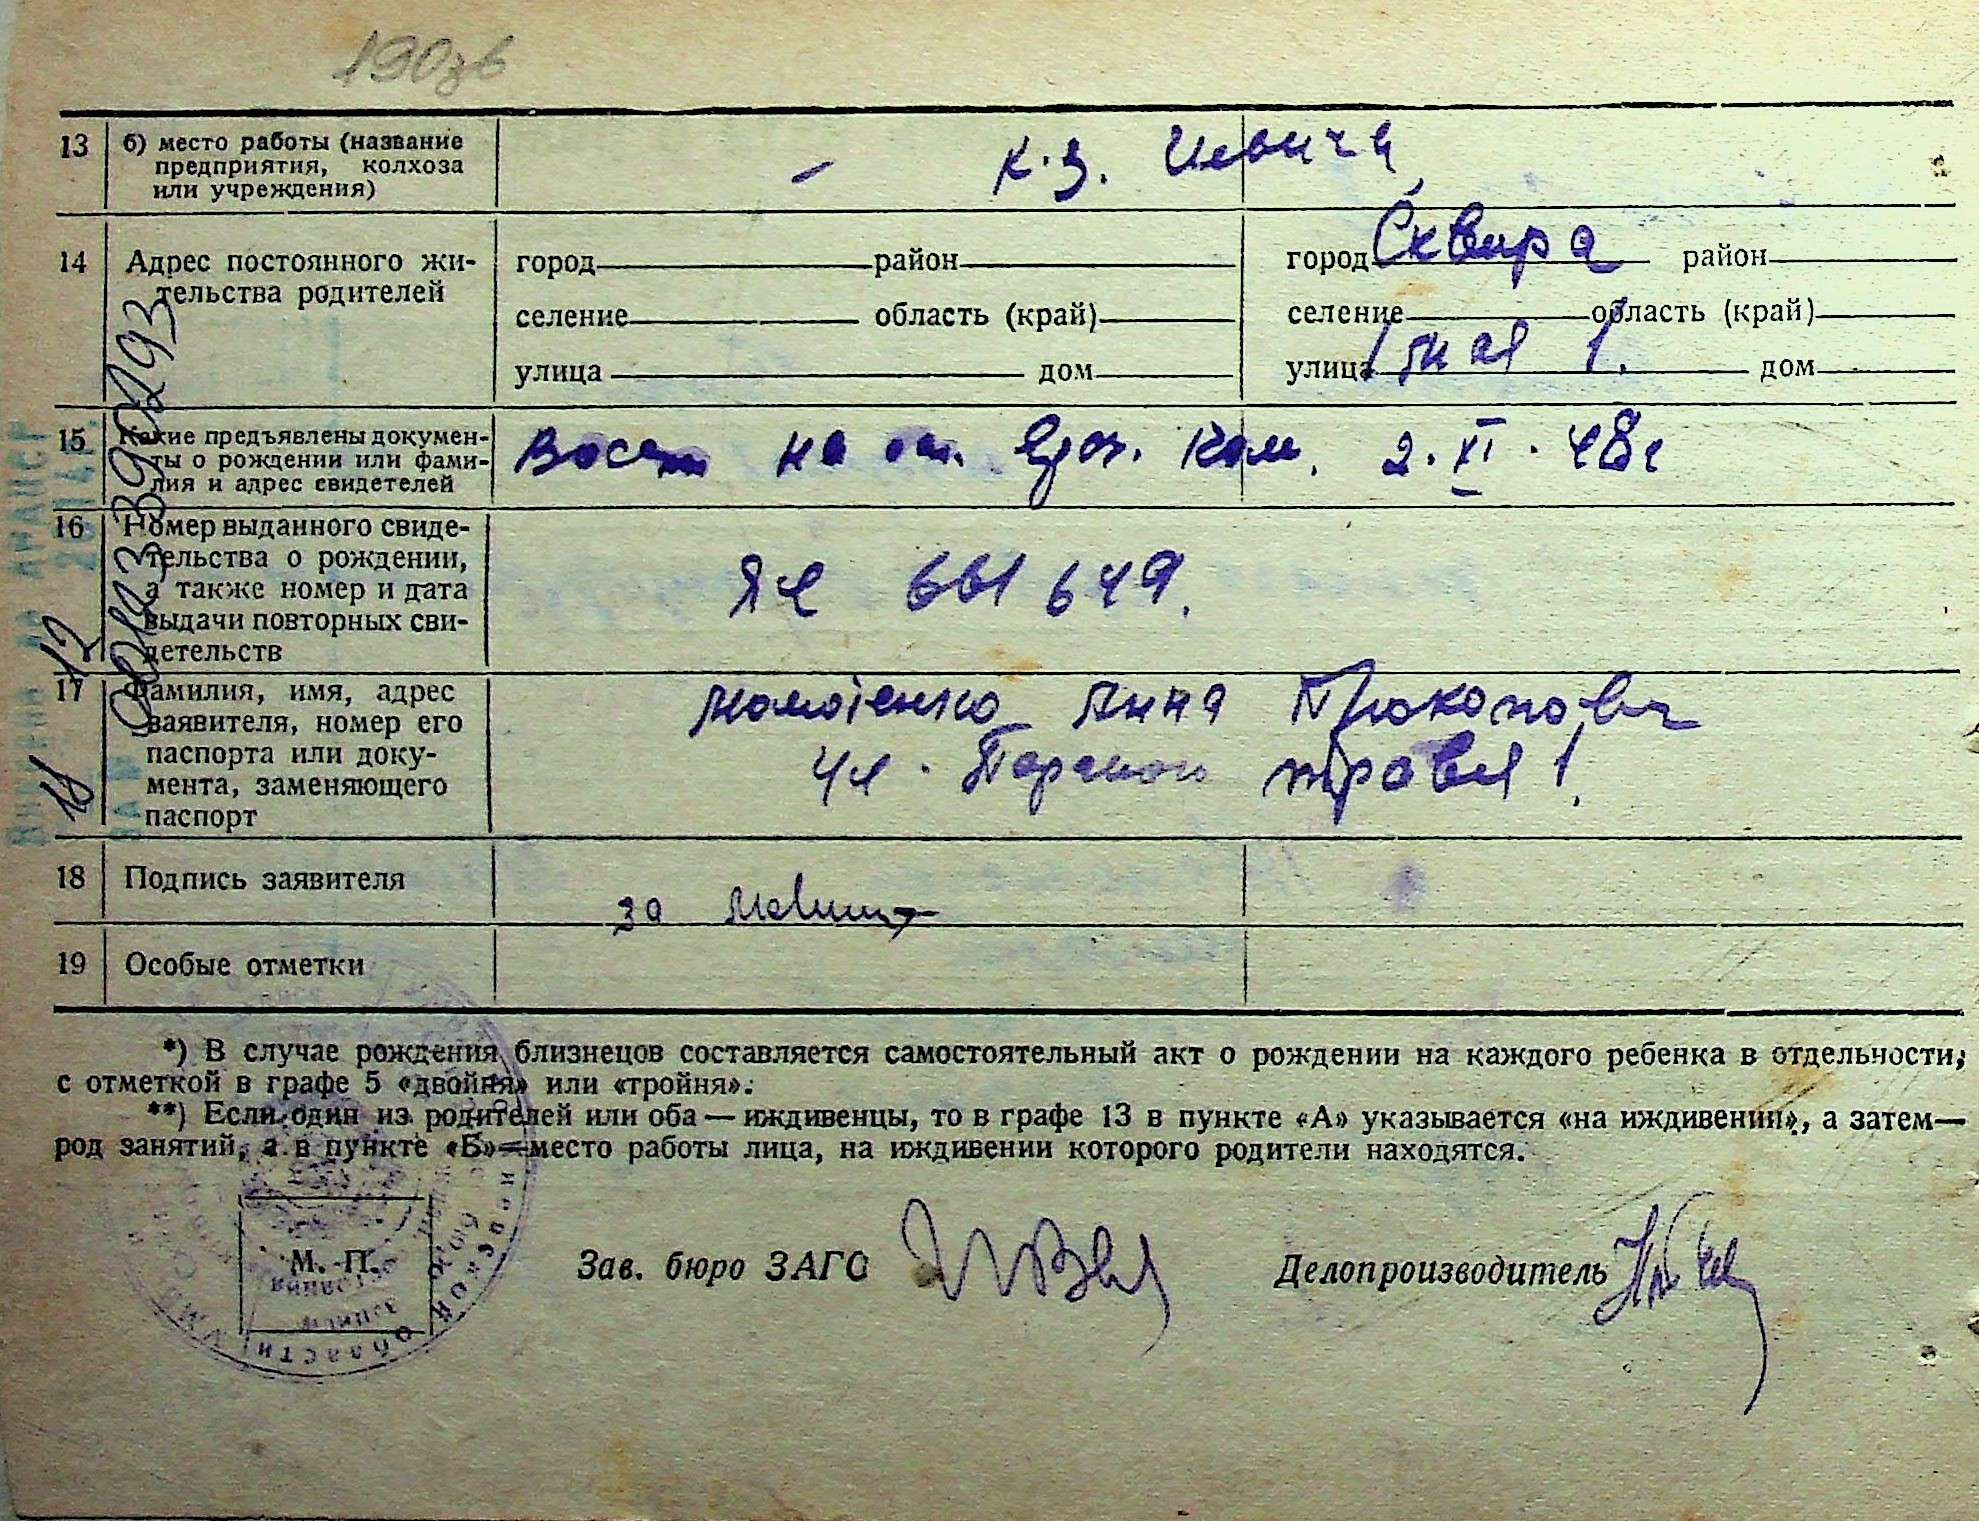 190зв
13 б) место работы (название
предприятия, колхоза
или учреждения)
– к.з. Ильича
14 Адрес постоянного жи-
тельства родителей
город район
селение область (край)
улица дом
город Сквира район
селение область (край)
улица 1 мая 1. дом
15 Какие предъявлены докумен-
ты о рождении или фами-
лия и адрес свидетелей
на Ком. 2.XI.48г
16 Номер выданного свиде-
тельства о рождении,
а также номер и дата
выдачи повторных сви-
детельств
ЯЧ 661649.
17 Фамилия, имя, адрес
заявителя, номер его
паспорта или доку-
мента, заменяющего
паспорт
Анна Прокоповн
травня 1.
18 Подпись заявителя
за
19 Особые отметки
*) В случае рождения близнецов составляется самостоятельный акт о рождении на каждого ребенка в отдельности,
с отметкой в графе 5 «двойня» или «тройня».
**) Если один из родителей или оба — иждивенцы, то в графе 13 в пункте «А» указывается «на иждивении», а затем—
род занятий, а в пункте «Б»—место работы лица, на иждивении которого родители находятся.
М. П.
Зав. бюро ЗАГС
Делопроизводитель